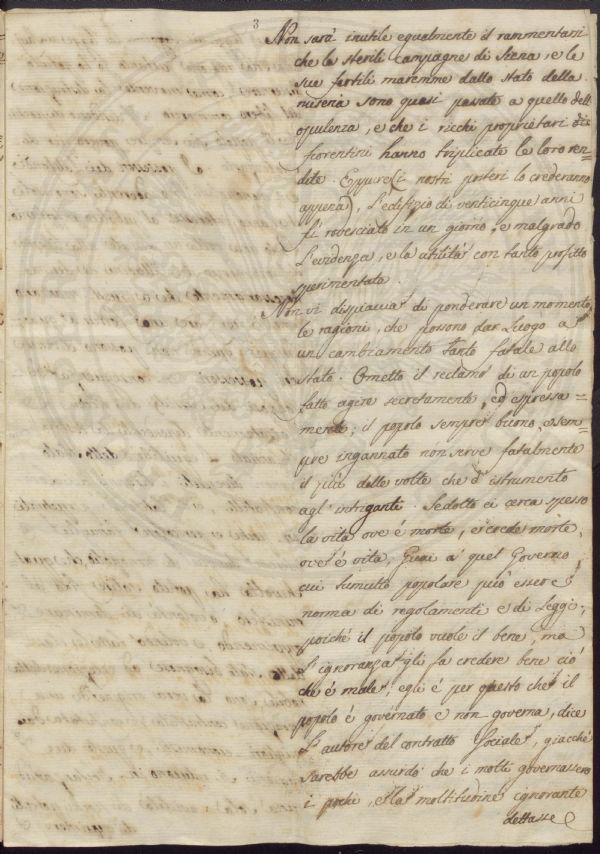 3
Non sarà inutile egualmente il rammentarsi
che le sterili campagne di Siena, e le
sue fertili maremme dallo stato della
miseria sono quasi passate a quello dell'
opulenza, e che i ricchi proprietari
fiorentini hanno triplicate le loro ren=
dite. Eppure (i nostri posteri lo crederanno
appena), L'edifizio di venticinque anni
fù rovesciato in un giorno, e malgrado
L'evidenza, e la utilità con tanto profitto
sperimentata.
Non vi dispiaccia di ponderare un momento
le ragioni, che possono dar luogo a
un cambiamento tanto fatale allo
Stato. Ometto il reclamo di un popolo
fatto agire secretamente, ed espressa=
mente; il popolo sempre buono, e sem=
pre ingannato non serve fatalmente
il più delle volte che d'istrumento
agl'intriganti. Sedotto ei cerca spesso
la vita ove é morte, ei crede morte,
ove é vita, Guai a quel Governo,
cui tumulto popolare può essere
norma di regolamenti e di Leggi;
poichè il popolo vuole il bene, ma
l'ignoranza gli fa credere bene ciò
che é male; egli é per questo che il
popolo é governato e non governa, dice
l'autore del contratto Sociale, giacchè
sarebbe assurdo che i molti governassero
i pochi, e la moltitudine ignorante
dettasse